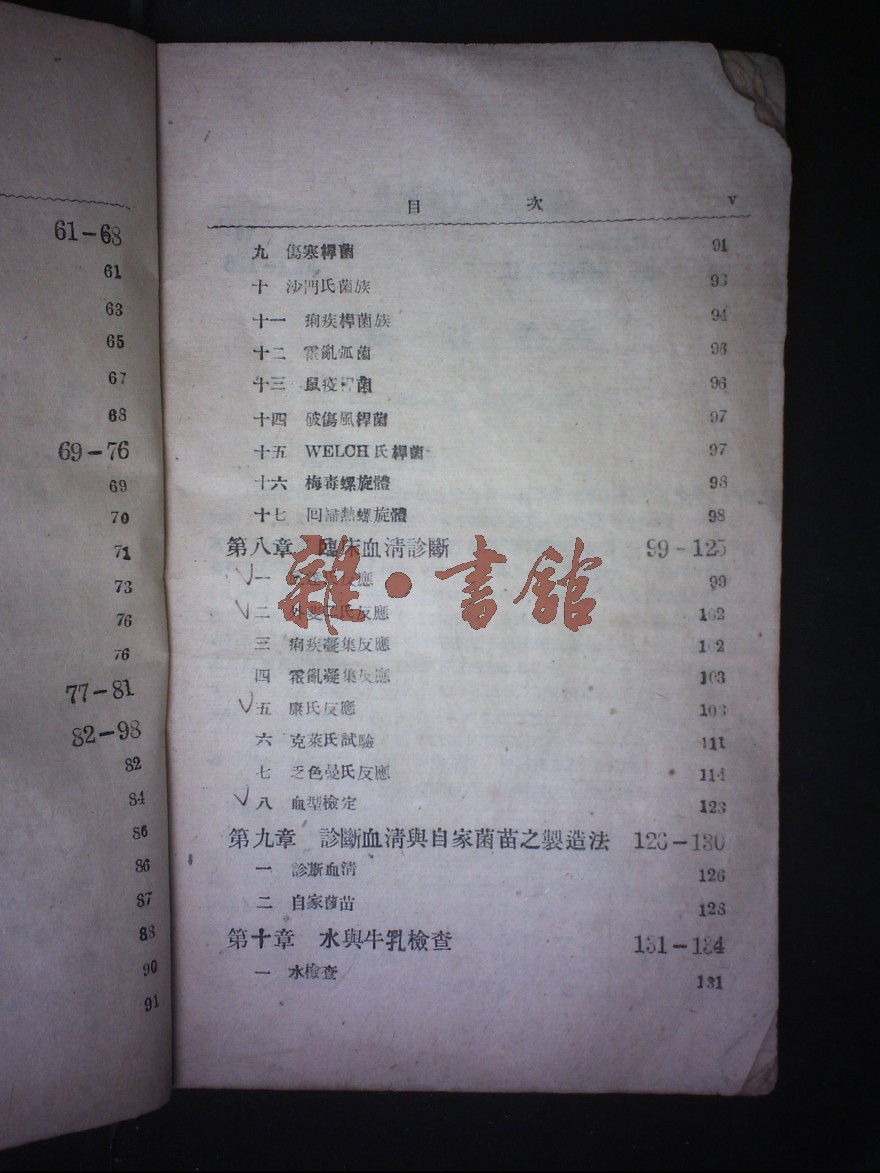 61-68
61
63
65
67
68
69-76
69
70
71
73
76
76
77-81
82-98
82
84
86
86
87
88
90
91
目 次 v
九 傷寒桿菌 91
十 沙門氏菌族 93
十一 痢疾桿菌族 94
十二 霍亂弧菌 96
十三 鼠疫桿菌 96
十四 破傷風桿菌 97
十五 WELCH氏桿菌 97
十六 梅毒螺旋體 98
十七 回歸熱螺旋體 98
第八章 臨床血清診斷 99-125
一 氏反應 99
二 外斐二氏反應 102
三 痢疾凝集反應 102
四 霍亂凝集反應 103
五 康氏反應 103
六 克萊氏試驗 111
七 乏色曼氏反應 114
八 血型檢定 123
雜·書館
第九章 診斷血清與自家菌苗之製造法 126-130
一 診斷血清 126
二 自家菌苗 128
第十章 水與牛乳檢查 131-134
一 水檢查 131